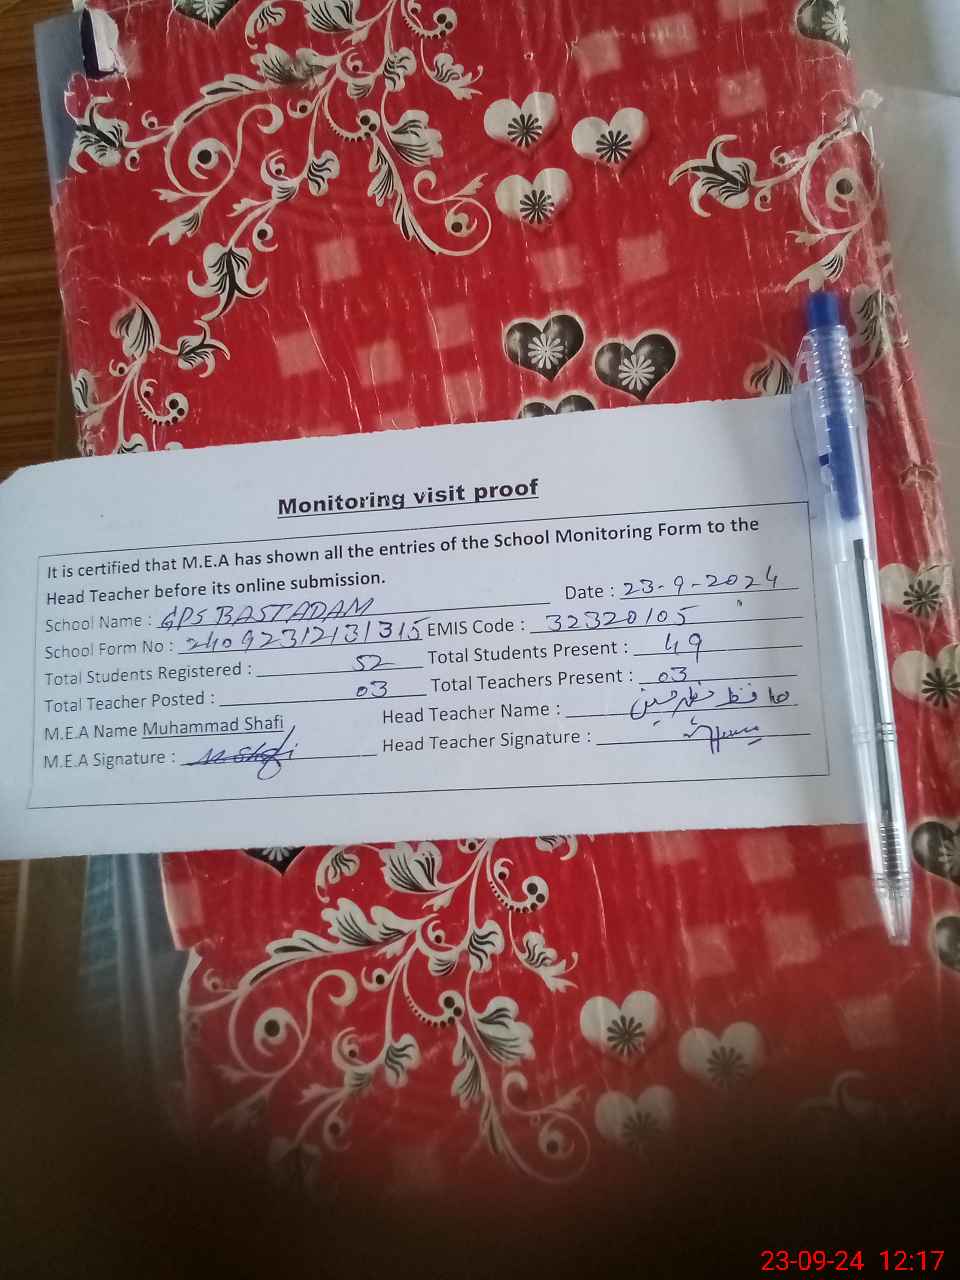 Monitoring visit proof
It is certified that M.E.A has shown all the entries of the School Monitoring Form to the
Head Teacher before its online submission.
Date : 23-9-2024
School Name : GPS BASTADAM
School Form No : 24092312131315 EMIS Code : 32320105
Total Students Registered : 52 Total Students Present : 49
Total Teacher Posted : 03 Total Teachers Present : 03
M.E.A Name Muhammad Shafi Head Teacher Name : حافظ
M.E.A Signature : M Shafi Head Teacher Signature :
23-09-24 12:17